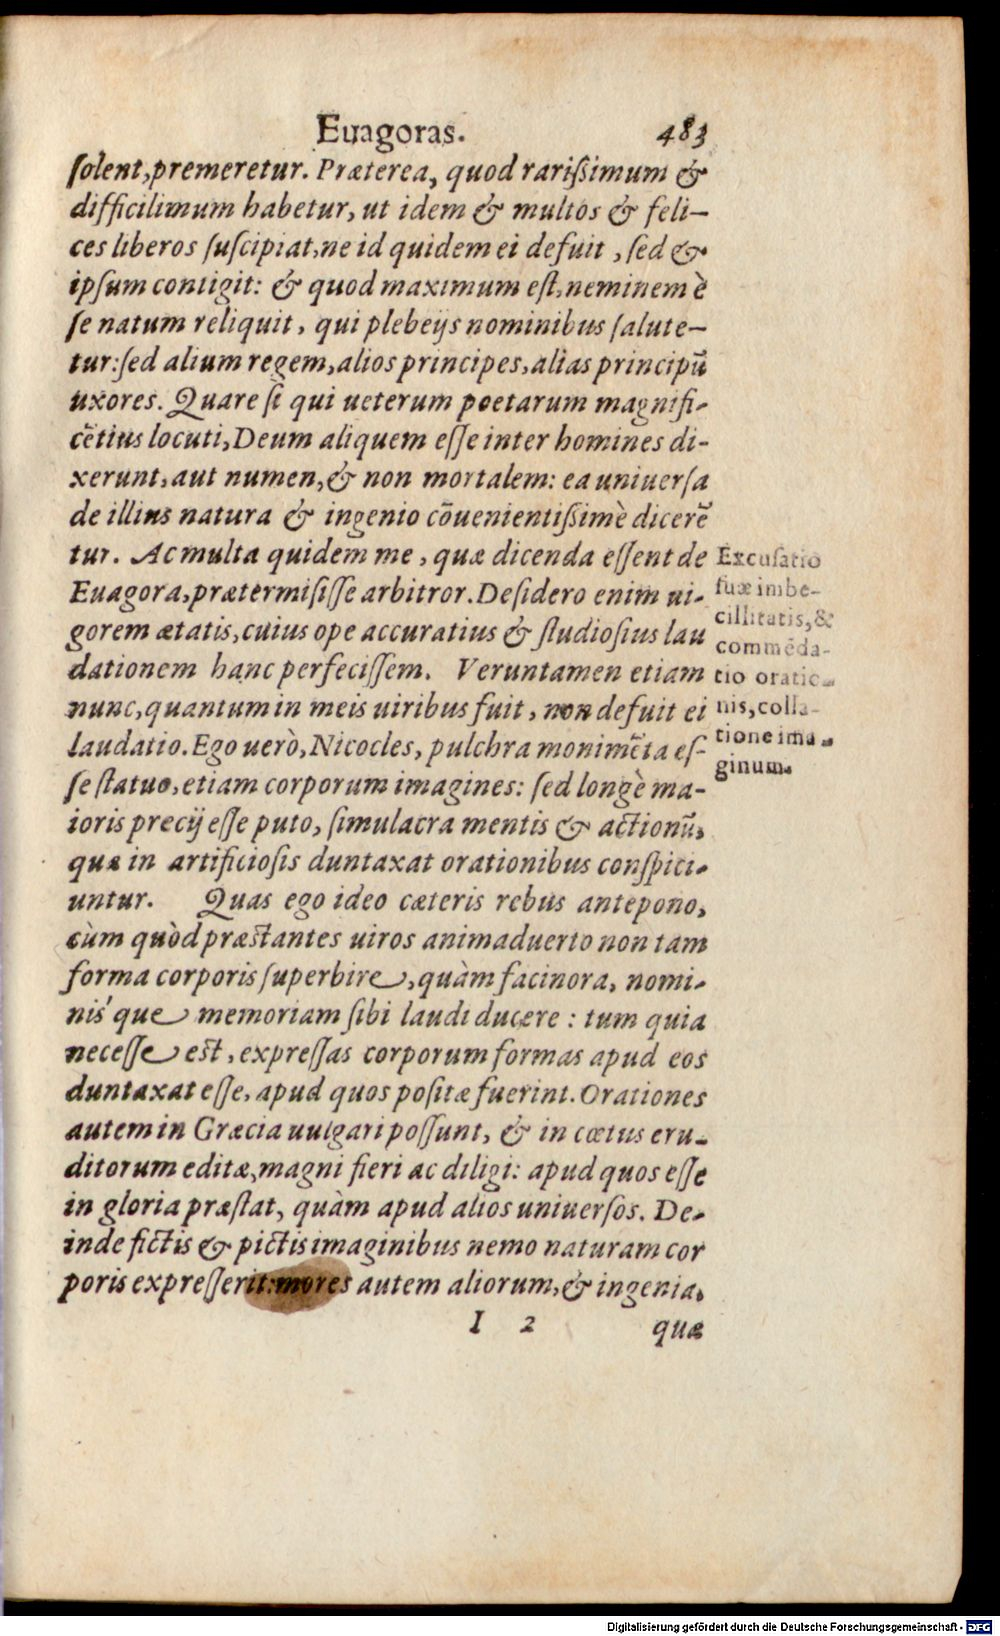 Euagoras. 483
ſolent, premeretur. Præterea, quod rariſsimum &
difficilimum habetur, ut idem & multos & feli-
ces liberos ſuſcipiat, ne id quidem ei defuit, ſed &
ipſum contigit: & quod maximum eſt, neminem è
ſe natum reliquit, qui plebeijs nominibus ſalute-
tur: ſed alium regem, alios principes, alias principũ
uxores. Quare ſi qui ueterum poetarum magnifi-
cẽtius locuti, Deum aliquem eſſe inter homines di-
xerunt, aut numen, & non mortalem: ea uniuerſa
de illius natura & ingenio cõuenientiſsimè dicerẽ
tur. Ac multa quidem me, quæ dicenda eſſent de
Euagora, prætermiſiſſe arbitror. Deſidero enim ui-
gorem ætatis, cuius ope accuratius & ſtudioſius lau
dationem hanc perfeciſſem. Veruntamen etiam
nunc, quantum in meis uiribus fuit, non defuit ei
laudatio. Ego uerò, Nicocles, pulchra monimẽta eſ-
ſe ſtatuo, etiam corporum imagines: ſed longè ma-
ioris precij eſſe puto, ſimulacra mentis & actionũ,
quæ in artificioſis duntaxat orationibus conſpici-
untur. Quas ego ideo cæteris rebus antepono,
cùm quòd præstantes uiros animaduerto non tam
forma corporis ſuperbire, quàm facinora, nomi-
nis'que memoriam ſibi laudi ducere: tum quia
neceſſe est, expreſſas corporum formas apud eos
duntaxat eſſe, apud quos poſitæ fuerint. Orationes
autem in Græcia uulgari poſſunt, & in cœtus eru-
ditorum editæ, magni fieri ac diligi: apud quos eſſe
in gloria præſtat, quàm apud alios uniuerſos. De-
inde fictis & pictis imaginibus nemo naturam cor
poris expreſſerit: mores autem aliorum, & ingenia,
I 2 quæ
Excuſatio
ſuæ imbe-
cillitatis, &
commẽda-
tio oratio-
nis, colla-
tione ima-
ginum.
Digitalisierung gefördert durch die Deutsche Forschungsgemeinschaft - DFG